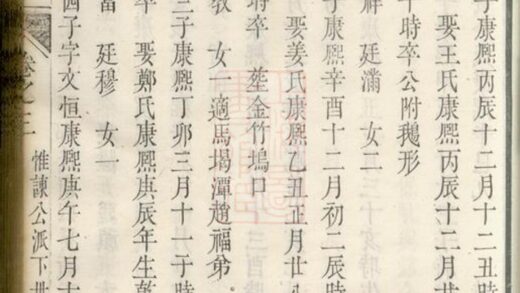 子康熙丙辰十二月十二丑時
娶王氏康熙丙辰十二月廿
時卒公附鵝形
廷滿 女二
康熙辛酉十二月初二辰時
娶姜氏康熙乙丑正月廿八
時卒 塟金竹塢口
教 女一適馬塌潭趙福弟
三子康熙丁卯三月十一子時
卒 娶鄭氏康熙庚辰年生乾
富 廷穆 女一
四子字文恒康熙庚午七月十
卷之三 惟諫公派下世